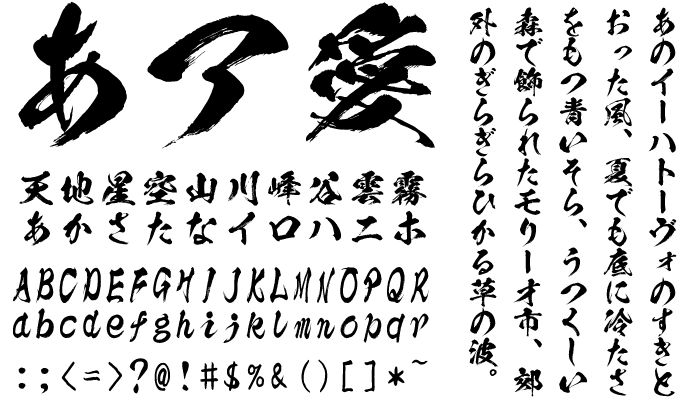 あア愛
天地星空山川峰谷雲霧
あかさたなイロハニホ
ABCDEFGHIJKLMNOPQR
abcdefghijklmnopqr
:;<=>?@!#$%&()[]*~
あのイーハトーヴォのすきと
おった風、夏でも底に冷たさ
をもつ青いそら、うつくしい
森で飾られたモリーオ市、郊
外のぎらぎらひかる草の波。